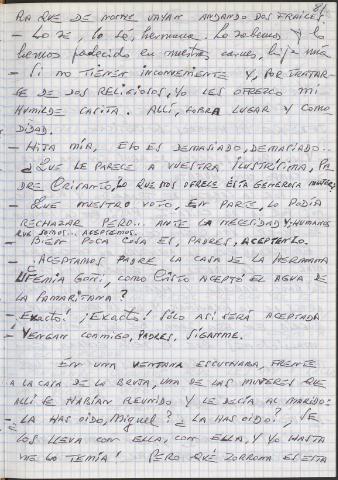 81
RA QUE DE NOCHE VAYAN ANDANDO DOS FRAILES.
- LO SÉ, LO SÉ, hermana. LO sabemos y lo
hemos padecido en nuestras carnes, hija mía
- SI NO TIENEN INCONVENIENTE Y, POR TRATAR
SE DE DOS RELIGIOSOS, YO LES OFREZCO MI
HUMILDE CASITA. ALLÍ, SOBRA LUGAR Y COMO
DIDAD.
- HIJA MÍA, ESO ES DEMASIADO, DEMASIADO...
¿QUE LE PARECE A VUESTRA ILUSTRÍSIMA, PA
DRE CRISANTO, LO QUE NOS OFRECE ESTA GENEROSA MUJER?
- QUE NUESTRO VOTO, EN PARTE, LO PODÍA
RECHAZAR PERO... ANTE LA NECESIDAD Y, HUMANOS
QUE SOMOS... ACEPTEMOS.
- BIEN POCA COSA ES, PADRES, ACEPTENLO.
- ¿ACEPTAMOS PADRE LA CASA DE LA HERMANA
EUFEMIA GOÑI, COMO CRISTO ACEPTÓ EL AGUA DE
LA SAMARITANA?
- ¡EXACTO! ¡EXACTO! SÓLO ASÍ SERÁ ACEPTADA
- VENGAN CONMIGO, PADRES, SÍGANME.
EN UNA VENTANA ESCUCHABA, FRENTE
A LA CASA DE LA BRUTA, UNA DE LAS MUJERES QUE
ALLÍ SE HABÍAN REUNIDO Y LE DECÍA AL MARIDO:
- ¿LA HAS OIDO, Miguel? ¿LA HAS OIDO?, SE
LOS LLEVA CON ELLA, CON ELLA, Y YO HASTA
ME LO TEMÍA! PERO QUÉ ZORRONA ES ESTA